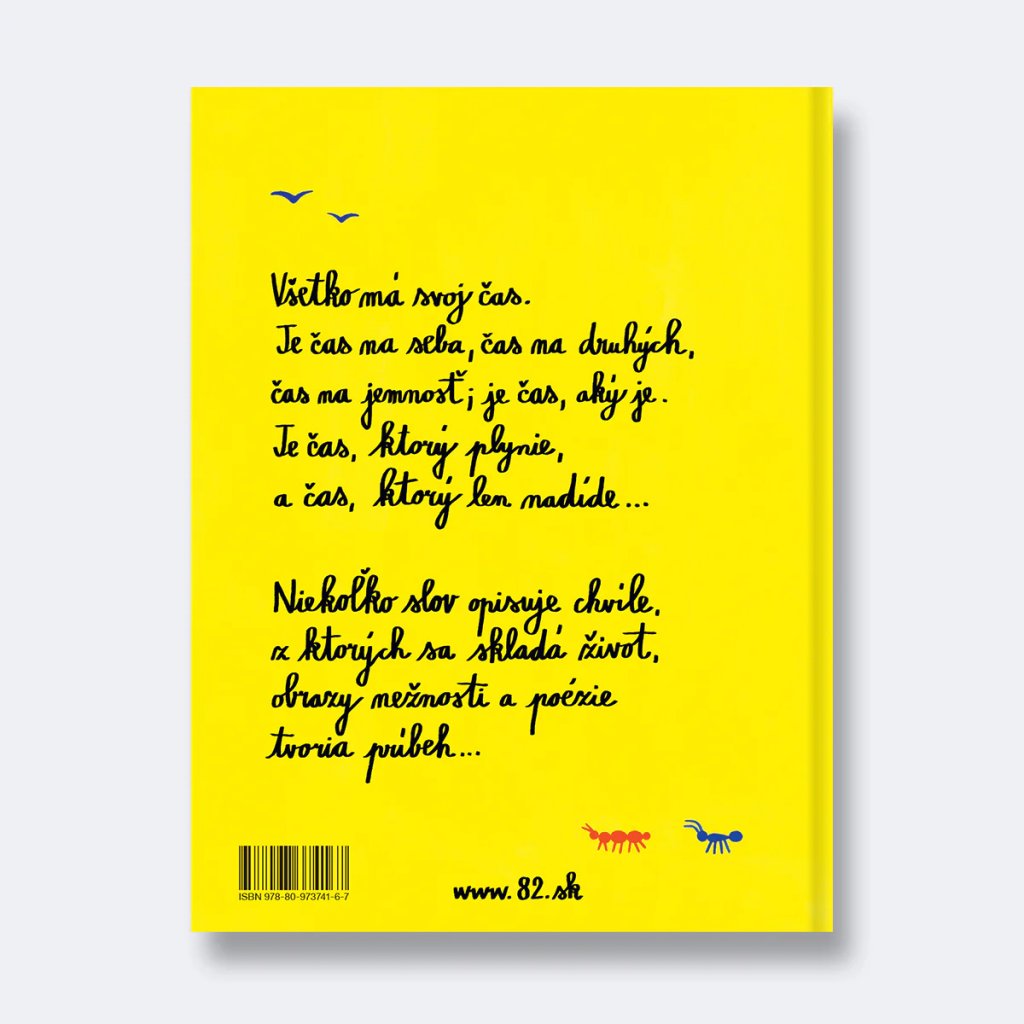 Všetko má svoj čas.
Je čas na seba, čas na druhých,
čas na jemnosť; je čas, aký je.
Je čas, ktorý plynie,
a čas, ktorý len nadíde...
Niekoľko slov opisuje chvíle,
z ktorých sa skladá život,
obrazy nežnosti a poézie
tvoria príbeh...
ISBN 978-80-973741-6-7
www.82.sk